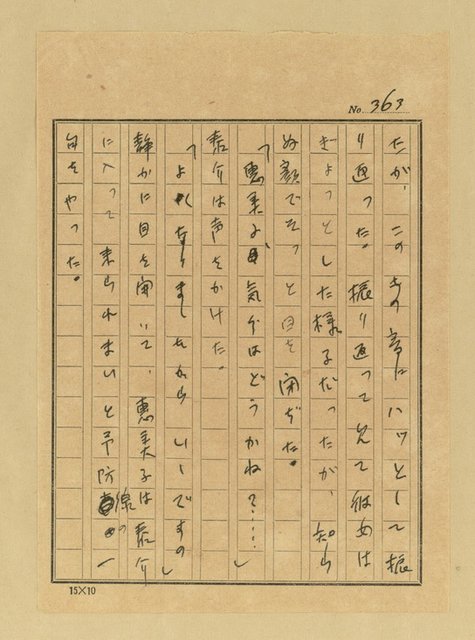 No. 363
たが、この戸の音にハッとして振
り返った。振り返って見て彼女は
ぎよっとした様子だったが、知ら
ぬ顔でそっと目を閉ぢた。
「恵美子、気分はどうかね?……」
泰介は声をかけた。
「よくなりましたから いゝですの」
静かに目を開いて、恵美子は泰介
に入って来られまいと予防線の一
句をやった。
15×10